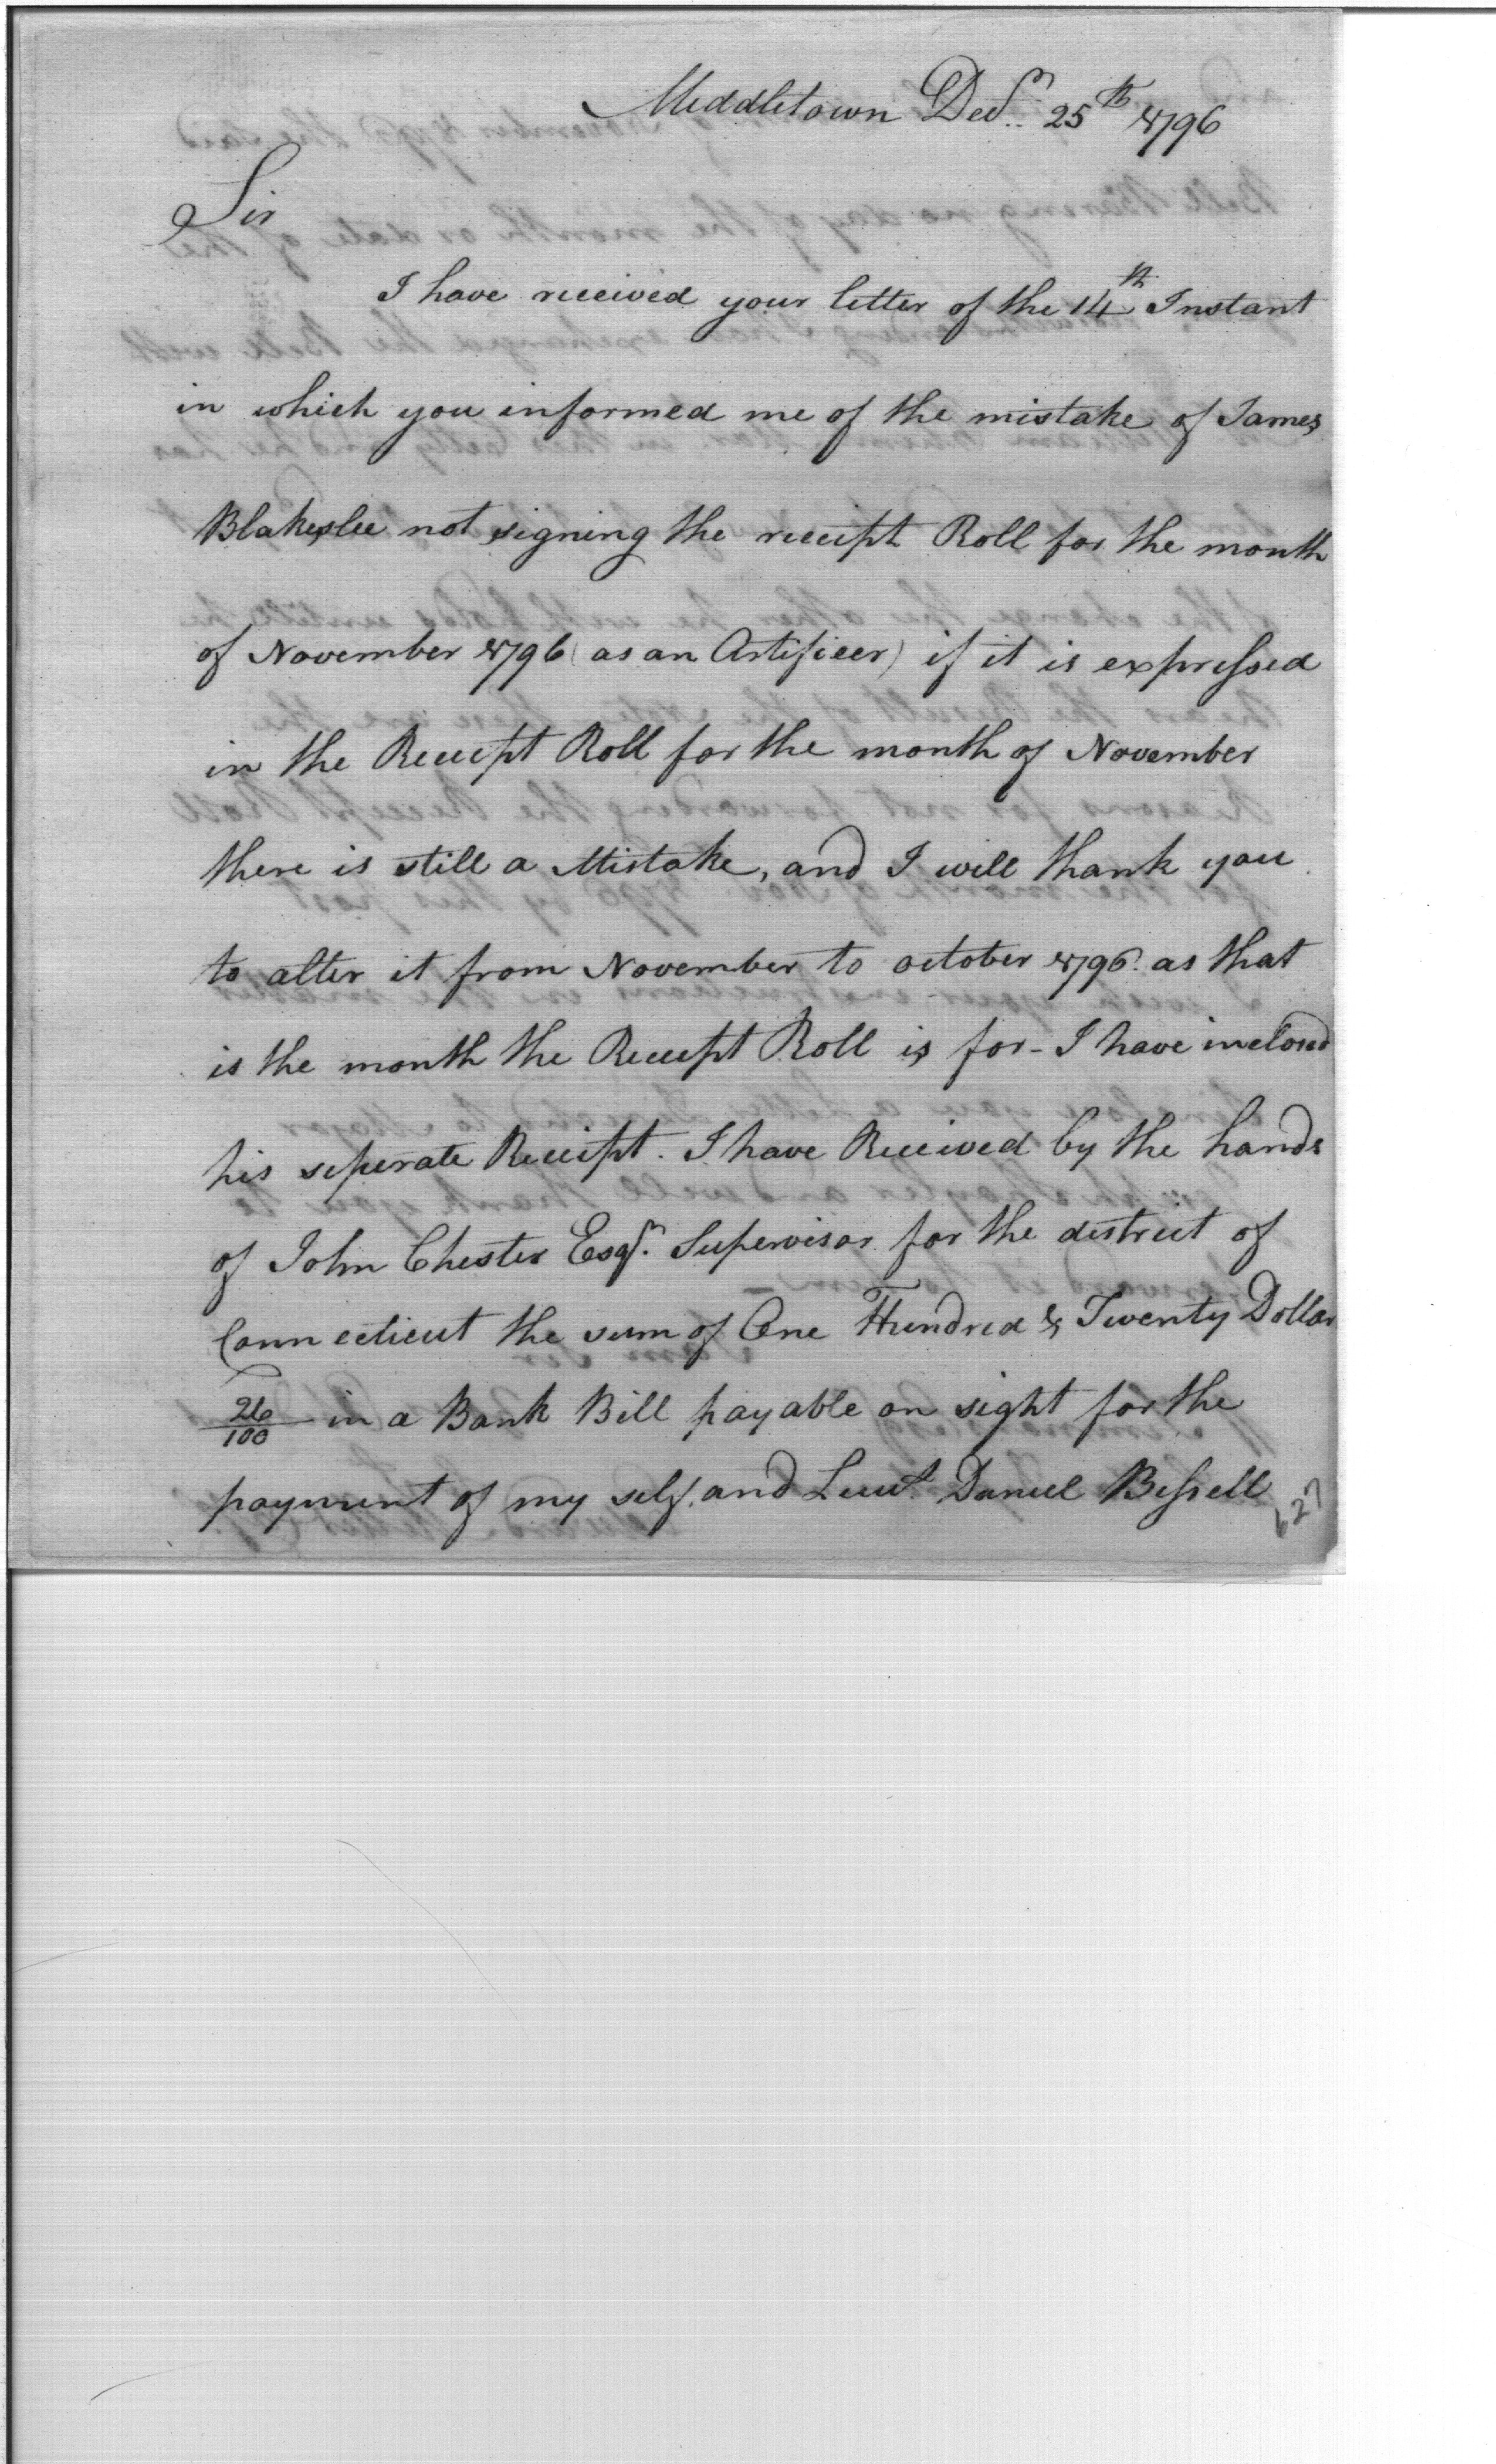 Middletown Decr. 25th 1796
Sir
I have received your letter of the 14th Instant
in which you informed me of the mistake of James
Blakeslee not signing the receipt Roll for the month
of November 1796 (as an Artificer) if it is expressed
in the Receipt Roll for the month of November
there is still a Mistake, and I will thank you
to alter it from November to october 1796. as that
is the month the Receipt Roll is for - I have inclosed
his seperate Receipt. I have Received by the hands
of John Chester Esqr. Supervisor for the district of
Connecticut the sum of One Hundred & Twenty Dollar
26/100 in a Bank Bill payable on sight for the
payment of my self, and Lieut. Daniel Bissell
627